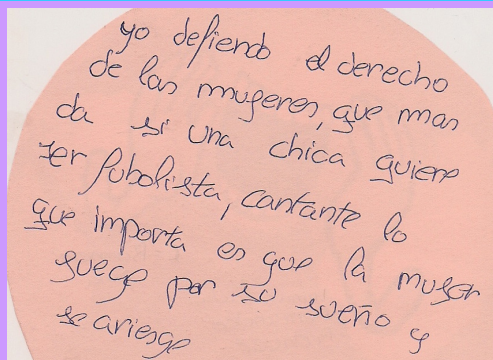 yo defiendo el derecho
de las mugeres, que mas
da si una chica quiere
ser fubolista, cantante lo
que importa es que la muger
luege por su sueño y
se ariesge